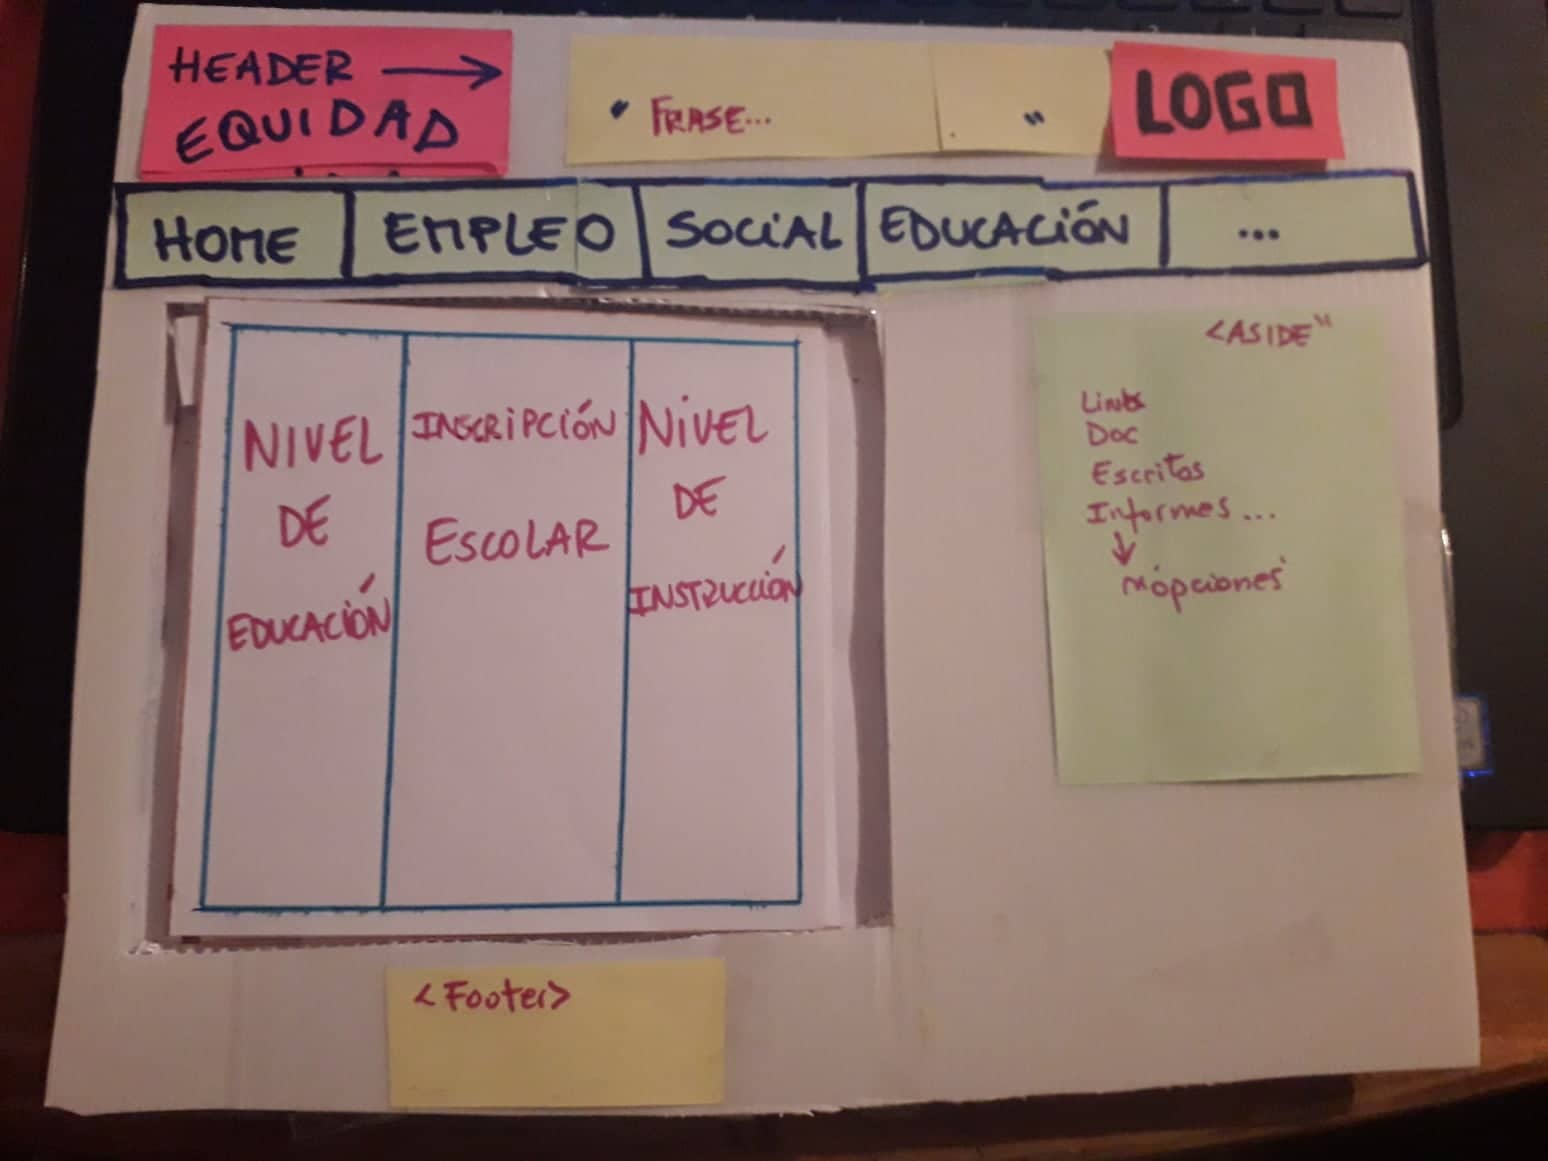 HEADER →
EQUIDAD
" FRASE... "
LOGO
HOME
EMPLEO
SOCIAL
EDUCACIÓN
...
NIVEL
DE
EDUCACIÓN
INSCRIPCIÓN
ESCOLAR
NIVEL
DE
INSTRUCCIÓN
<ASIDE"
Links
Doc
Escritos
Informes ...
↓
opciones
<Footer>